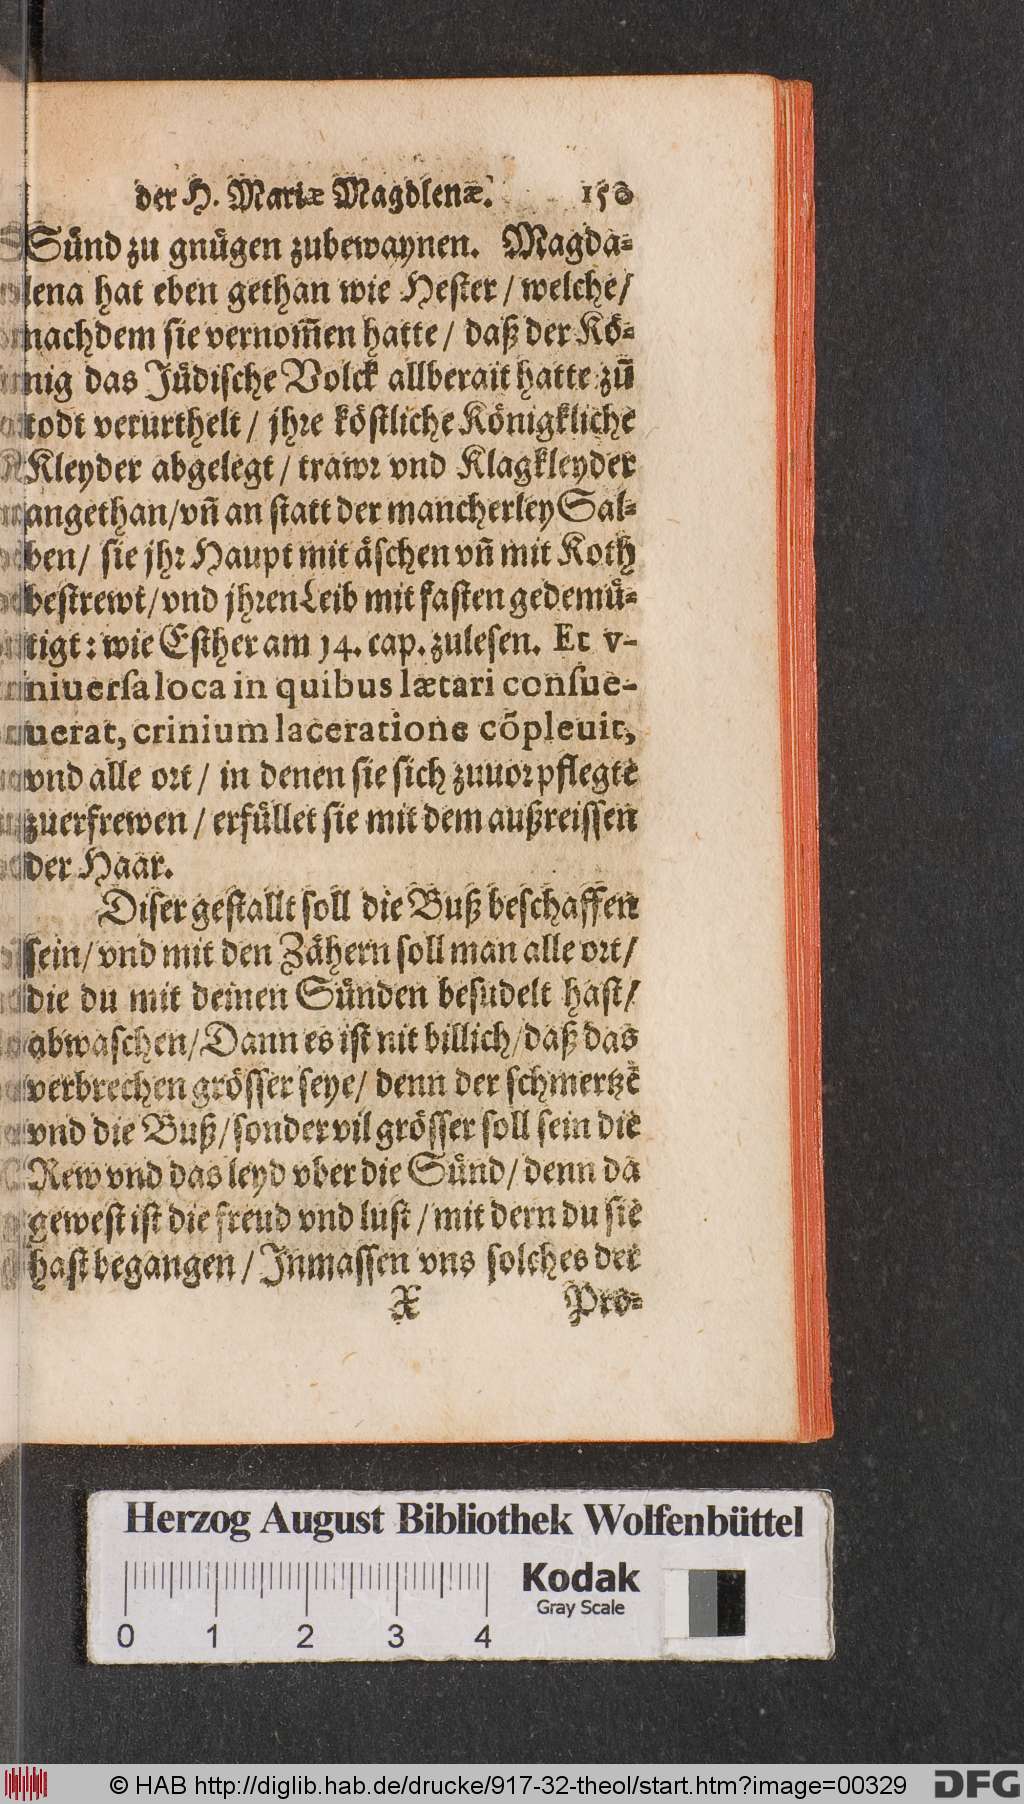 der H. Mariæ Magdlenæ. 150
Sünd zu gnügen zubewaynen. Magda-
lena hat eben gethan wie Hester / welche /
nachdem sie vernom̃en hatte / daß der Kö-
nig das Jüdische Volck allberait hatte zũ
todt verurthelt / jhre köstliche Königkliche
Kleyder abgelegt / trawr vnd Klagkleyder
angethan / vñ an statt der mancherley Sal-
ben / sie jhr Haupt mit äschen vñ mit Koth
bestrewt / vnd jhren Leib mit fasten gedemü-
tigt : wie Esther am 14. cap. zulesen. Et v-
niuersa loca in quibus lætari consue-
uerat, crinium laceratione cõpleuit,
vnd alle ort / in denen sie sich zuuor pflegte
zuerfrewen / erfüllet sie mit dem außreissen
der Haar.
Diser gestallt soll die Buß beschaffen
sein / vnd mit den Zähern soll man alle ort /
die du mit deinen Sünden besudelt hast /
abwaschen / Dann es ist nit billich / daß das
verbrechen grösser seye / denn der schmertzẽ
vnd die Buß / sonder vil grösser soll sein die
Rew vnd das leyd vber die Sünd / denn da
gewest ist die freud vnd lust / mit dern du sie
hast begangen / Inmassen vns solches der
X Pro-
Herzog August Bibliothek Wolfenbüttel
Kodak
Gray Scale
0 1 2 3 4
© HAB http://diglib.hab.de/drucke/917-32-theol/start.htm?image=00329
DFG